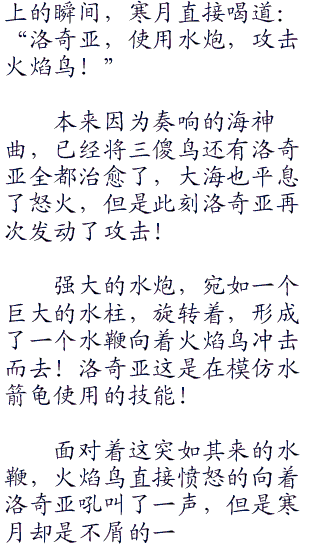 上的瞬间，寒月直接喝道：
“洛奇亚，使用水炮，攻击
火焰鸟！”
本来因为奏响的海神
曲，已经将三傻鸟还有洛奇
亚全都治愈了，大海也平息
了怒火，但是此刻洛奇亚再
次发动了攻击！
强大的水炮，宛如一个
巨大的水柱，旋转着，形成
了一个水鞭向着火焰鸟冲击
而去！洛奇亚这是在模仿水
箭龟使用的技能！
面对着这突如其来的水
鞭，火焰鸟直接愤怒的向着
洛奇亚吼叫了一声，但是寒
月却是不屑的一